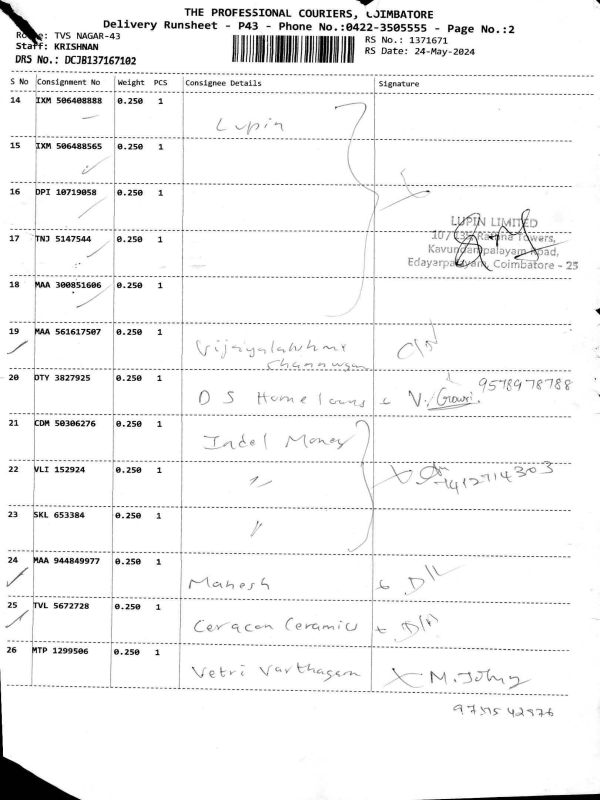 THE PROFESSIONAL COURIERS, COIMBATORE
Delivery Runsheet - P43 - Phone No.:0422-3505555 - Page No.:2
Route: TVS NAGAR-43
RS No.: 1371671
Staff: KRISHNAN
RS Date: 24-May-2024
DRS No.: DCJB137167102
S No Consignment No Weight PCS Consignee Details Signature
14 IXM 506408888 0.250 1 Lupin
15 IXM 506488565 0.250 1
16 DPI 10719058 0.250 1
LUPIN LIMITED
17 TNJ 5147544 0.250 1
Towers,
Kavundampalayam Road,
Edayarpalayam, Coimbatore - 25
18 MAA 300851606 0.250 1
19 MAA 561617507 0.250 1 Vijayalakshmi
Shanmugam
20 DTY 3827925 0.250 1 D S Homeloans V. Gowri. 9578978788
21 CDM 50306276 0.250 1 Indel Money
22 VLI 152924 0.250 1 "
23 SKL 653384 0.250 1 "
24 MAA 944849977 0.250 1 Mahesh
25 TVL 5672728 0.250 1 Ceracon Ceramics
26 MTP 1299506 0.250 1 Vetri Varthagam M. Johny